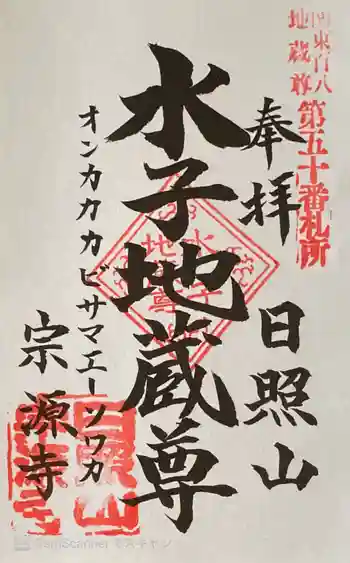 関東百八
地蔵尊
第五十番札所
奉拝
日照山
水子地蔵尊
水子
地蔵
尊
オンカカカビサマエーソワカ
宗源寺
日照山